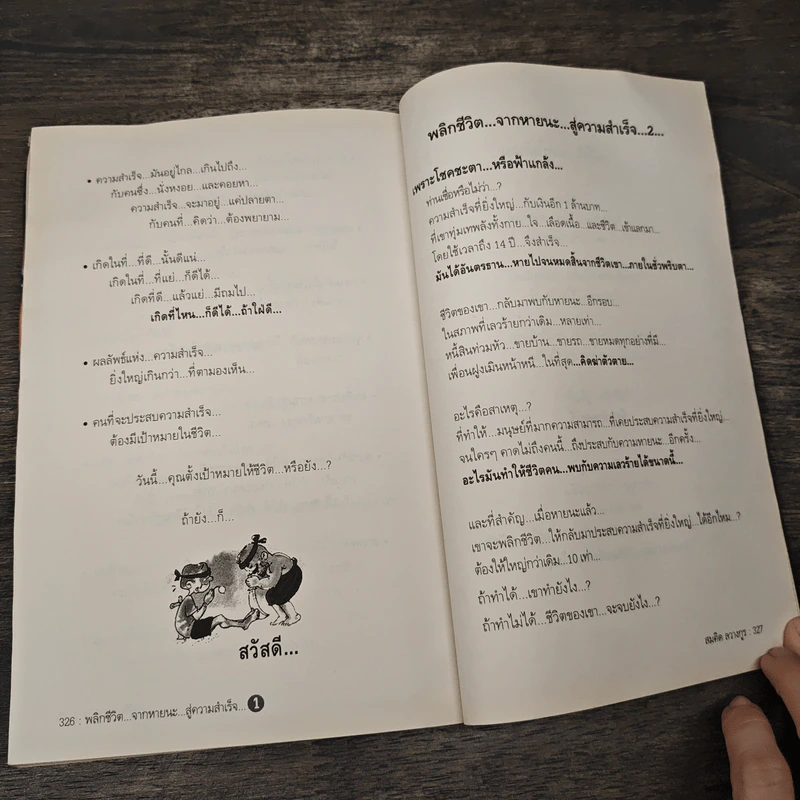 • ความสำเร็จ...มันอยู่ไกล...เกินไปถึง...
กับคนซึ่ง...นั่งหงอย...และคอยหา...
ความสำเร็จ...จะมาอยู่...แค่ปลายตา...
กับคนที่...คิดว่า...ต้องพยายาม...
• เกิดในที่...ที่ดี...นั้นดีแน่...
เกิดในที่...ที่แย่...ก็ดีได้...
เกิดที่ดี...แล้วแย่...มีถมไป...
เกิดที่ไหน...ก็ดีได้...ถ้าใฝ่ดี...
• ผลลัพธ์แห่ง...ความสำเร็จ...
ยิ่งใหญ่เกินกว่า...ที่ตามองเห็น...
• คนที่จะประสบความสำเร็จ...
ต้องมีเป้าหมายในชีวิต...
วันนี้...คุณตั้งเป้าหมายให้ชีวิต...หรือยัง...?
ถ้ายัง...ก็...
สวัสดี...
326 : พลิกชีวิต...จากหายนะ...สู่ความสำเร็จ... 1
พลิกชีวิต...จากหายนะ...สู่ความสำเร็จ...2...
เพราะโชคชะตา...หรือฟ้าแกล้ง...
ท่านเชื่อหรือไม่ว่า...?
ความสำเร็จที่ยิ่งใหญ่...กับเงินอีก 1 ล้านบาท...
ที่เขาทุ่มเทพลังทั้งกาย...ใจ...เลือดเนื้อ...และชีวิต...เข้าแลกมา...
โดยใช้เวลาถึง 14 ปี...จึงสำเร็จ...
มันได้อันตรธาน...หายไปจนหมดสิ้นจากชีวิตเขา...ภายในชั่วพริบตา...
ชีวิตของเขา...กลับมาพบกับหายนะ...อีกรอบ...
ในสภาพที่เลวร้ายกว่าเดิม...หลายเท่า...
หนี้สินท่วมหัว...ขายบ้าน...ขายรถ...ขายหมดทุกอย่างที่มี...
เพื่อนฝูงเมินหน้าหนี...ในที่สุด...คิดฆ่าตัวตาย...
อะไรคือสาเหตุ...?
ที่ทำให้...มนุษย์ที่มากความสามารถ...ที่เคยประสบความสำเร็จที่ยิ่งใหญ่...
จนใครๆ คาดไม่ถึงคนนี้...ถึงประสบกับความหายนะ...อีกครั้ง...
อะไรมันทำให้ชีวิตคน...พบกับความเลวร้ายได้ขนาดนี้...
และที่สำคัญ...เมื่อหายนะแล้ว...
เขาจะพลิกชีวิต...ให้กลับมาประสบความสำเร็จที่ยิ่งใหญ่...ได้อีกไหม...?
ต้องให้ใหญ่กว่าเดิม...10 เท่า...
ถ้าทำได้...เขาทำยังไง...?
ถ้าทำไม่ได้...ชีวิตของเขา...จะจบยังไง...?
สมคิด ลวางกูร : 327